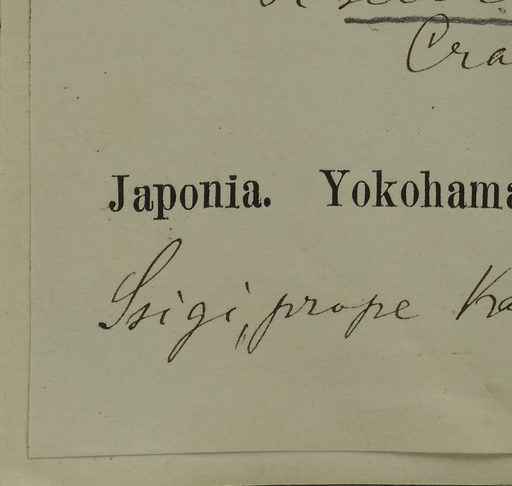 Cra
Japonia. Yokohama
Ssigi, prope Ka